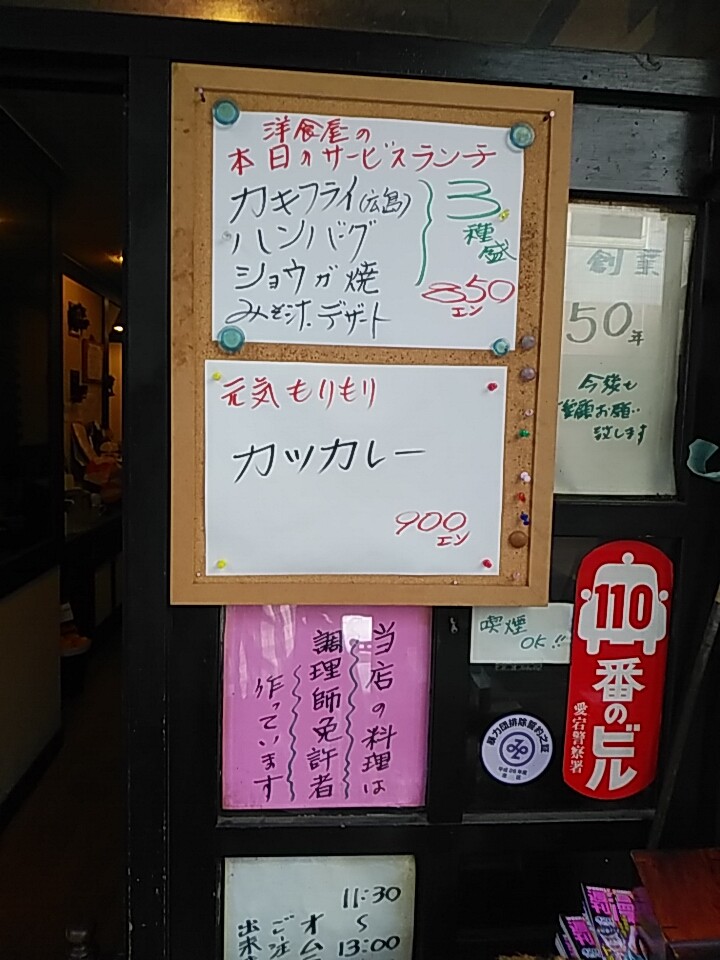 洋食屋の
本日のサービスランチ
カキフライ(広島)
ハンバグ
ショウガ焼
みそ汁.デザート
3
種
盛
850
エン
元気もりもり
カツカレー
900
エン
創業
50年
今後も
お願い
致します
当店の料理は
調理師免許者
作っています
喫煙
OK!!
110
番のビル
愛宕警察署
暴力団排除誓約之証
11:30
13:00
オム
ご注
出来